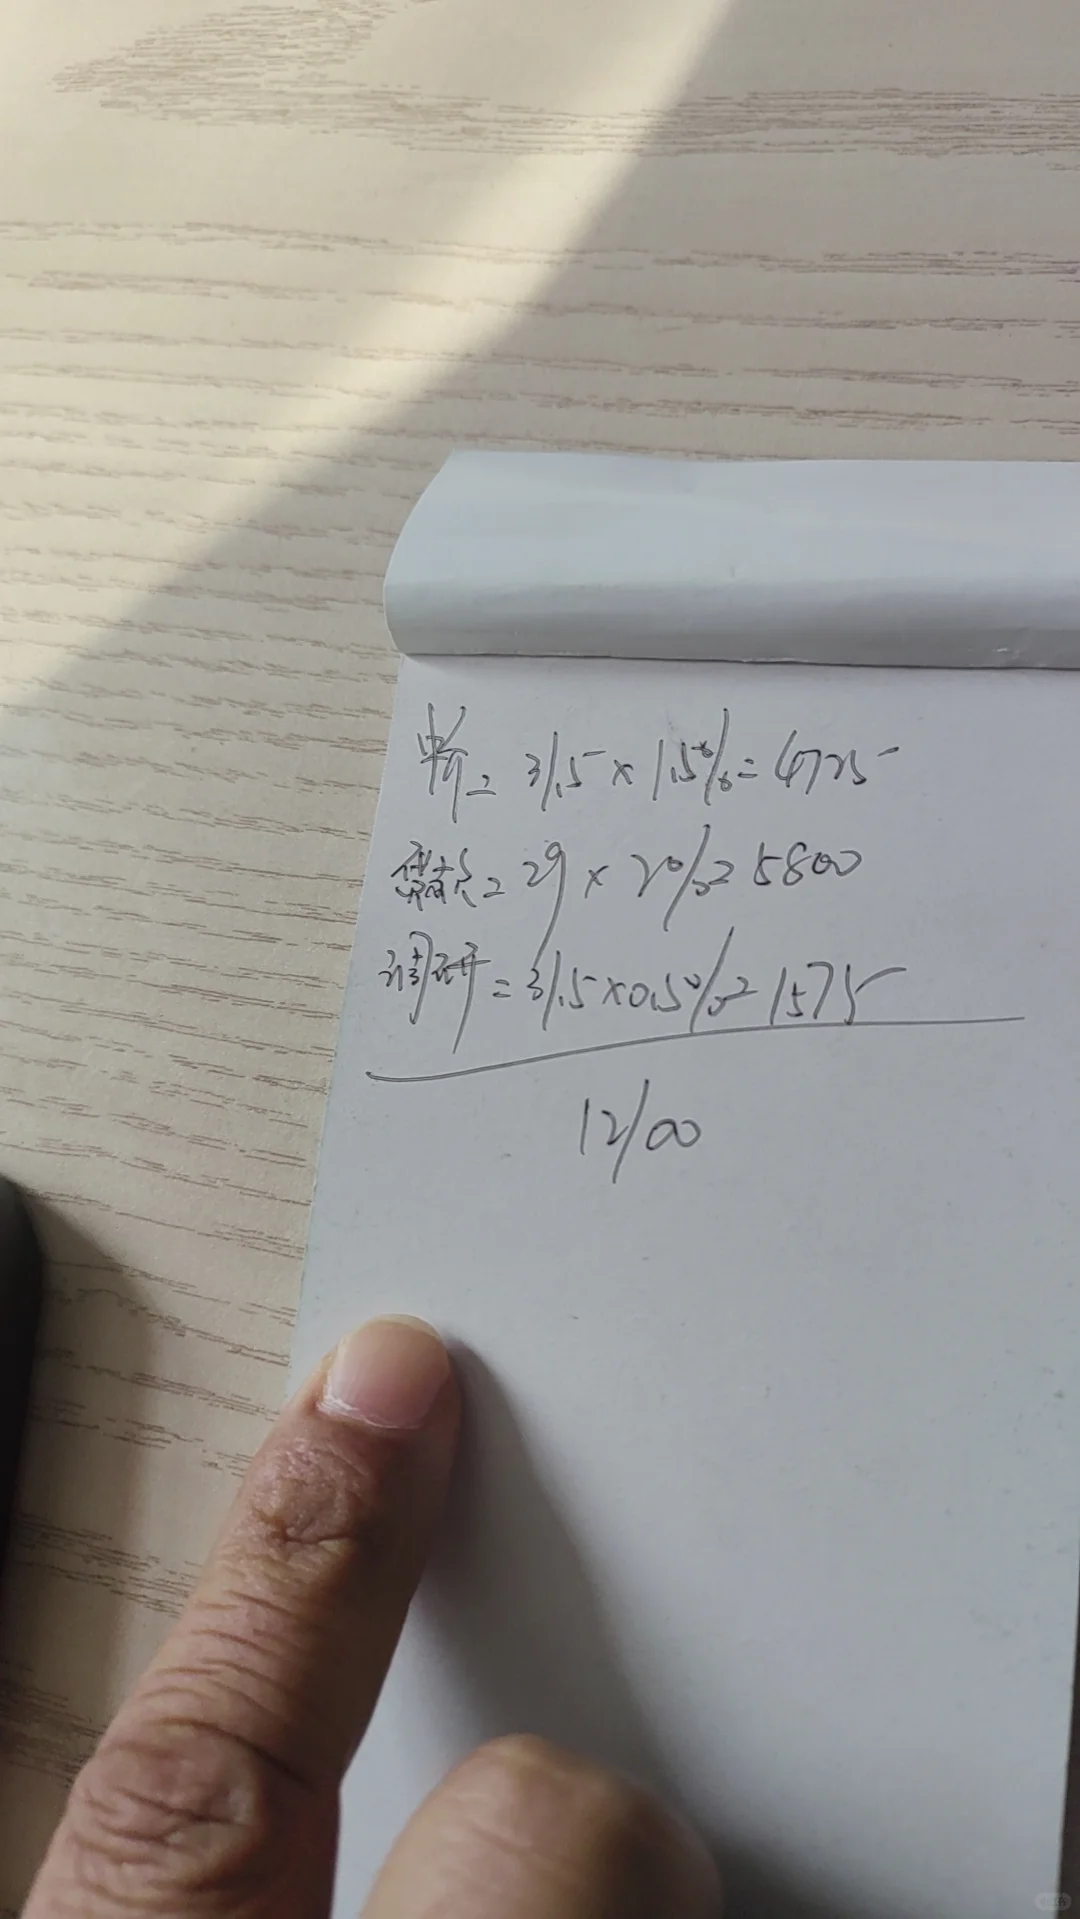 中介=31.5×1.5%=4725
贷款=29×2%=5800
调研=31.5×0.5%=1575
12100